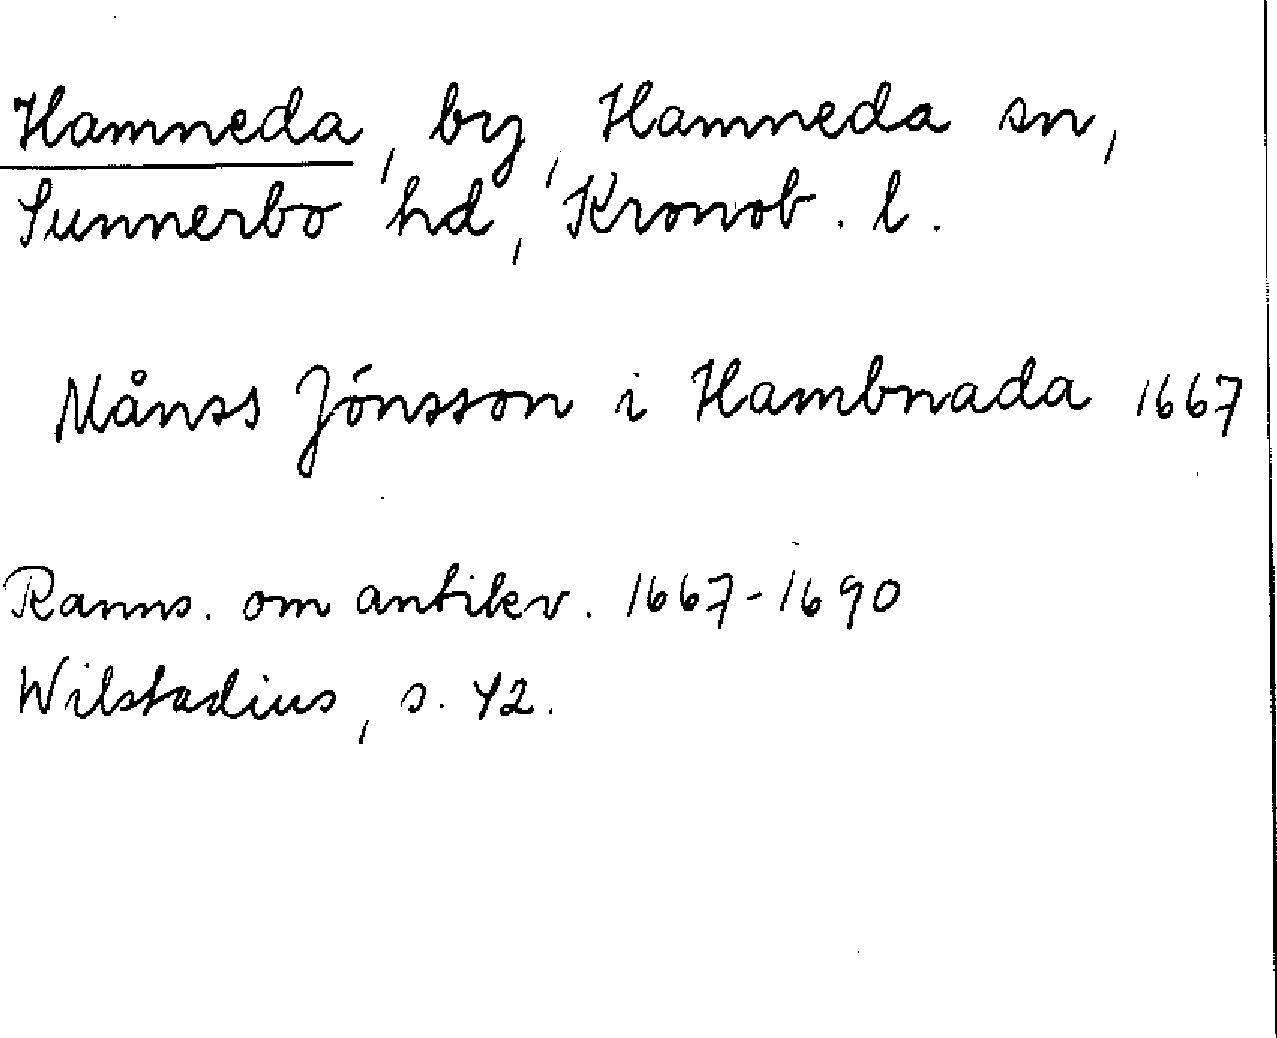 Hamneda, by, Hamneda sn,
Sunnerbo hd, Kronob. l.
Månss Jónsson i Hambnada 1667
Ranns. om antikv. 1667-1690
Wilstadius, s. 42.